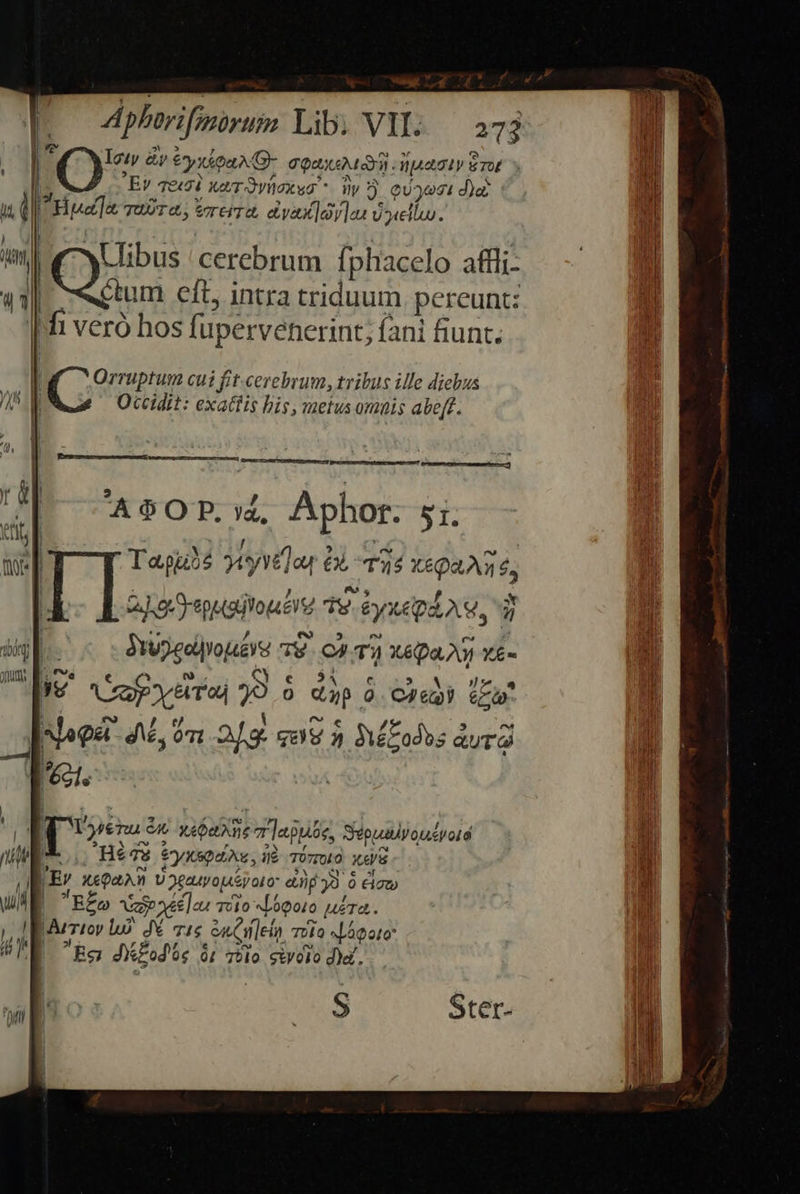 Aphorismorum Lib. VII. 273
Οἷσιν ἂν ἐγκέφαλος σφακελιϑῇ ἤμασιν ὅτοι
Ἐν τεισὶ καταθνήσκυσ'· ἢν ϳ φύγωσι διὰ
Ἤματα ταῦτα, ἔπειτα
QUibus cerebrum sphacelo affli-
ctum est, intra triduum pereunt:
si verò hos supervenerint; sani fiunt.
COrruptum cui fit cerebrum, tribus ille diebus
Occidit: exactis his, metus omnis abest.
ἈΦΟΡ. νά. Aphor. 51.
ΠΤαρμὸς γίγνεται ἐκ τῆς κεφαλῆς,
διαθερμαινομένου τοῦ ἐγκεφάλου, ἢ
διυγραινομένου τοῦ ἐν τῇ κεφαλῇ κε-
νοῦ· ὑπερχεῖται γὸ ὁ ἀὴρ ὁ ἐνεὼν ἔξω·
ψοφεῖ δὲ, ὅτι διὰ στενοῦ ἡ διέξοδος αὐτῷ
ἐστι.
Γίγνεται ἐκ κεφαλῆς πταρμὸς, θερμαινομένοιο
Ἠὲ τοῦ ἐγκεφάλου, ἠὲ τόποιο κενοῦ
Ἐν κεφαλῇ ὑγραινομένοιο· ἀὴρ γὸ ὁ εἴσω
Ἔξω ὑπερχέεται τοῖο ψόφοιο μέτα.
Αἴτιον ἰοῦ δέ τις ἐκζητείη τοῖο ψόφοιο·
Ἔστι διέξοδός οἱ τοῖο στενοῖο διά.
S Ster-